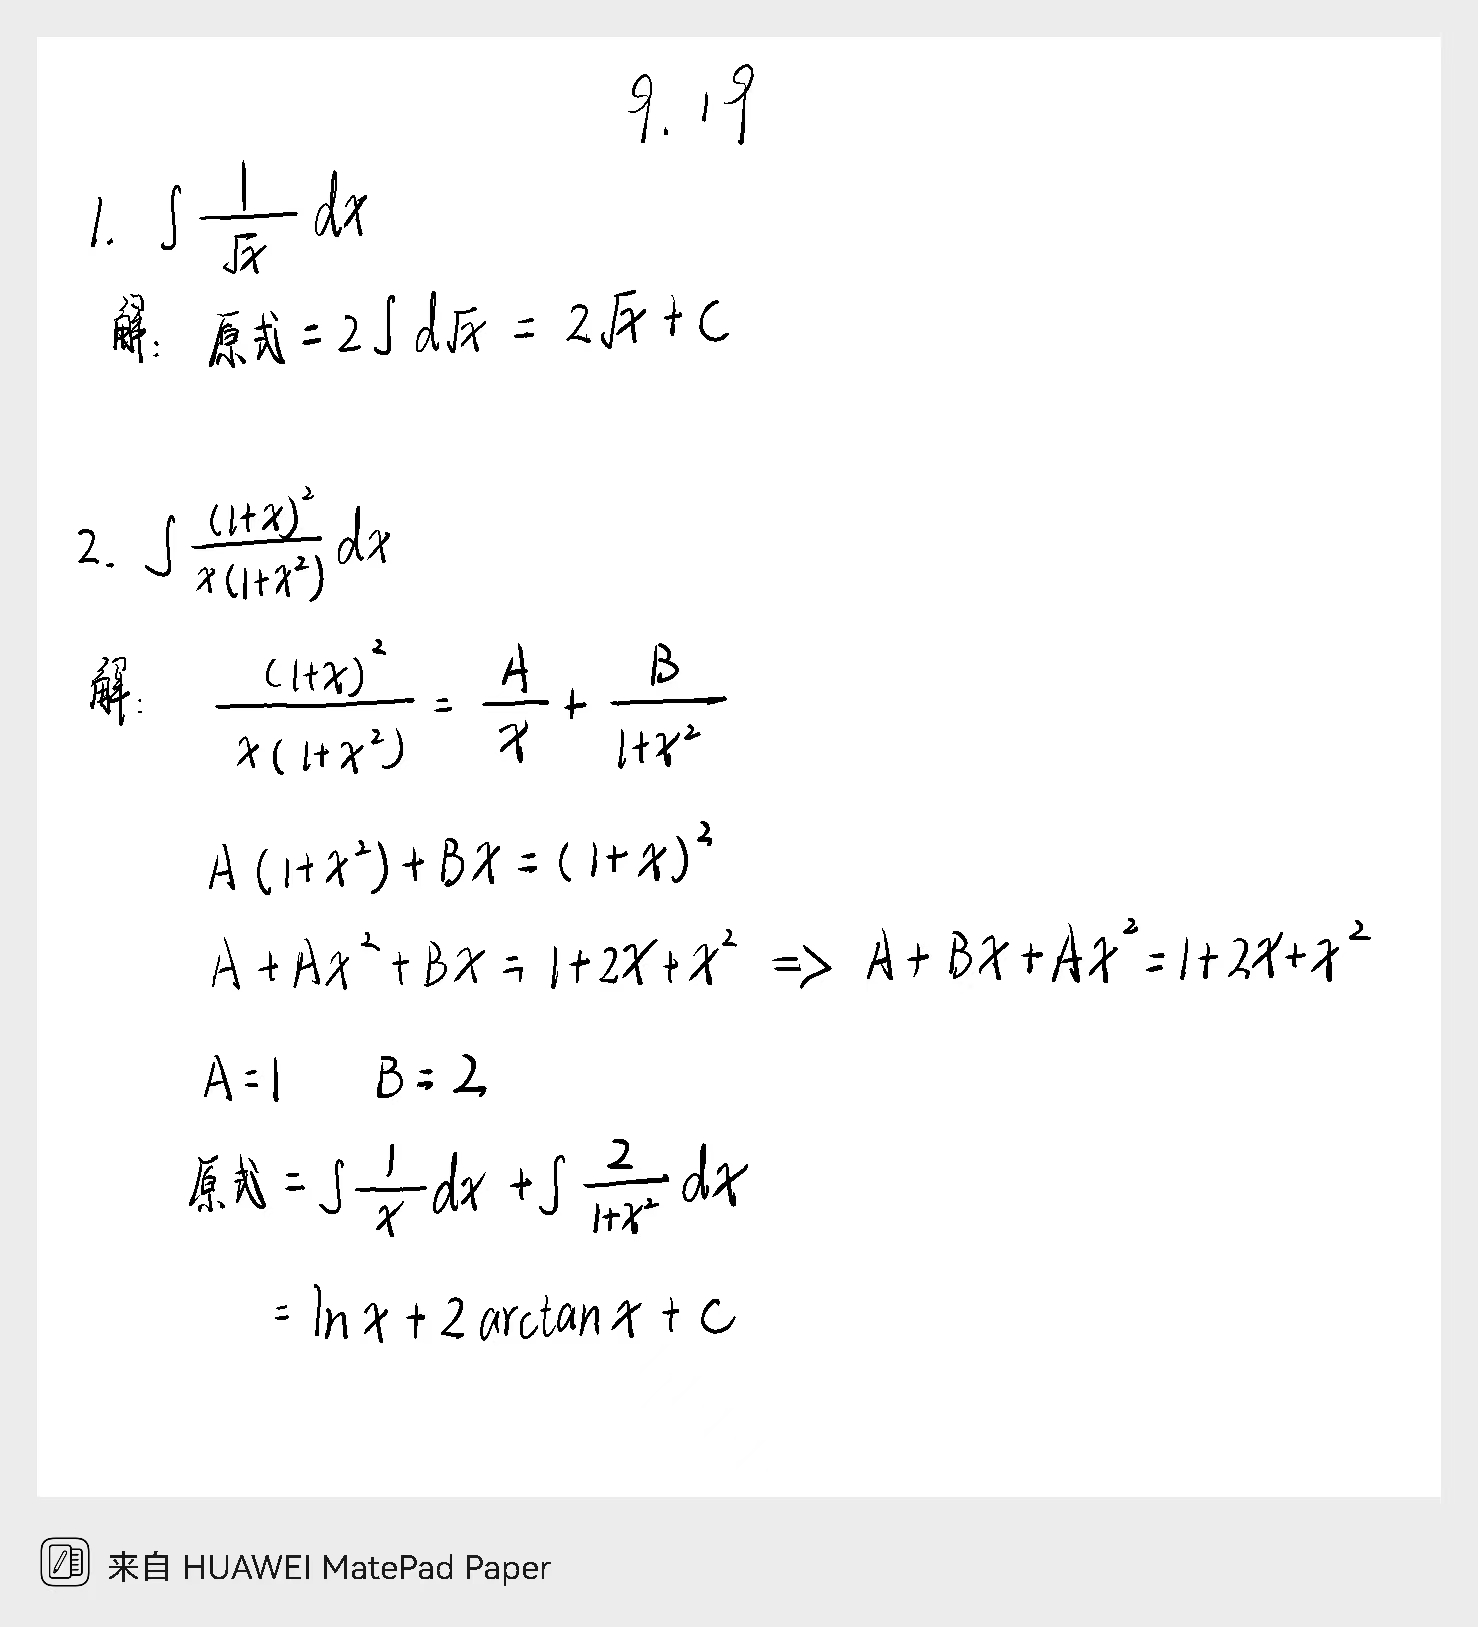 9.19
1. ∫ 1/√x dx
解: 原式 = 2∫d√x = 2√x + C
2. ∫ (1+x)²/x(1+x²) dx
解: (1+x)²/x(1+x²) = A/x + B/1+x²
A(1+x²)+Bx=(1+x)²
A+Ax²+Bx=1+2x+x² => A+Bx+Ax²=1+2x+x²
A=1 B=2
原式 = ∫ 1/x dx + ∫ 2/1+x² dx
= lnx + 2arctanx + C
来自 HUAWEI MatePad Paper